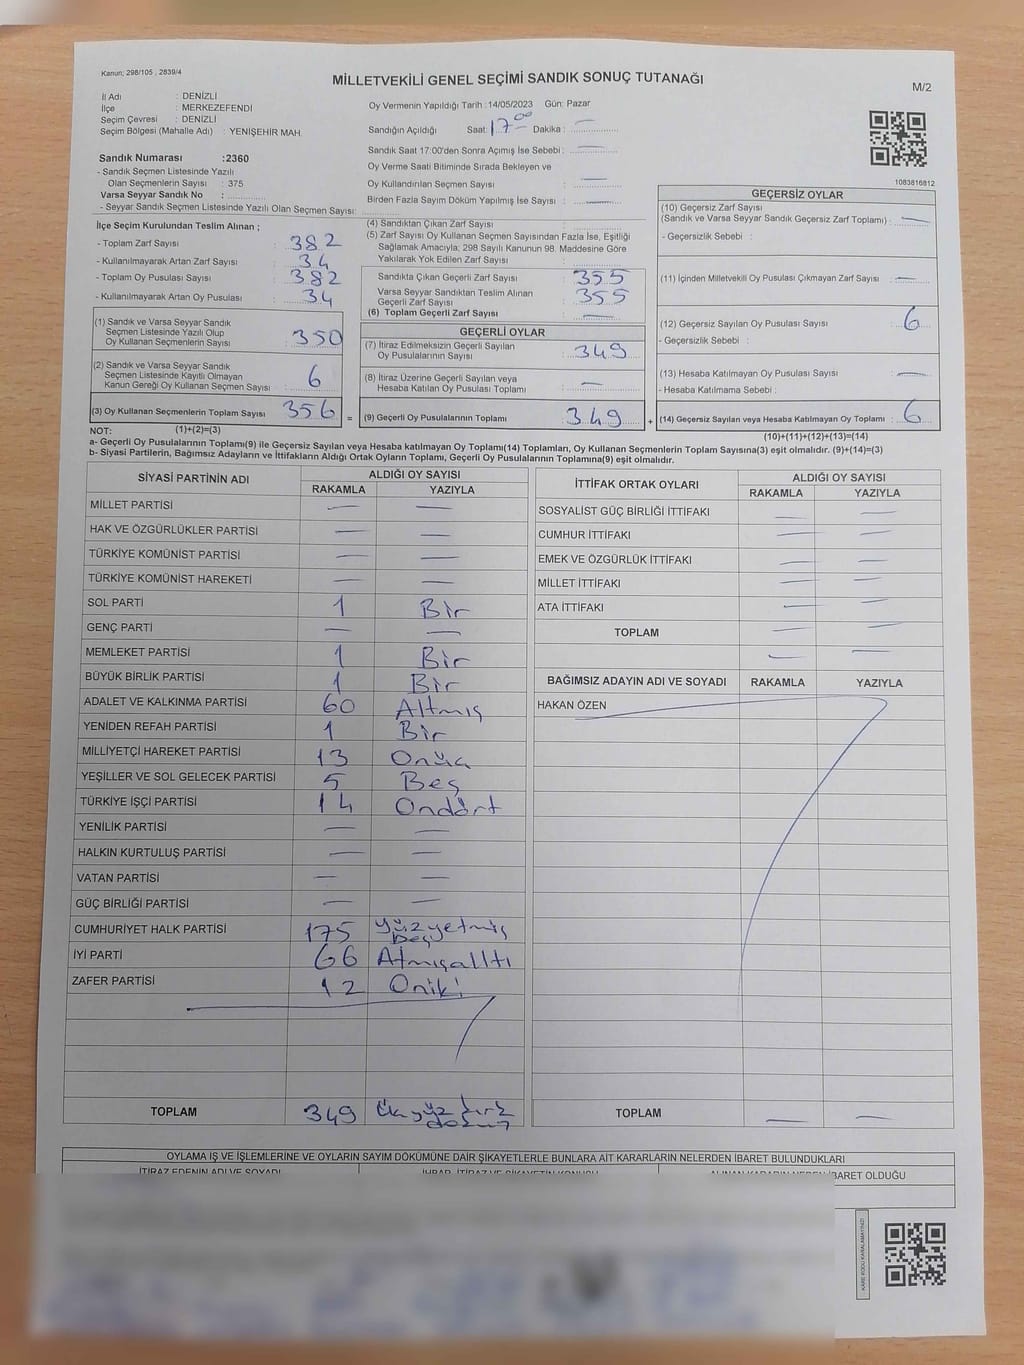 Kanun; 298/105 , 2839/4
MİLLETVEKİLİ GENEL SEÇİMİ SANDIK SONUÇ TUTANAĞI
M/2
İl Adı : DENİZLİ
İlçe : MERKEZEFENDİ
Seçim Çevresi : DENİZLİ
Seçim Bölgesi (Mahalle Adı) : YENİŞEHİR MAH.
Oy Vermenin Yapıldığı Tarih :14/05/2023 Gün: Pazar
Sandığın Açıldığı Saat: 17 00 Dakika : —
Sandık Saat 17:00'den Sonra Açımış İse Sebebi : —
Oy Verme Saati Bitiminde Sırada Bekleyen ve
Oy Kullandırılan Seçmen Sayısı : —
Birden Fazla Sayım Döküm Yapılmış İse Sayısı : —
1083816812
Sandık Numarası :2360
- Sandık Seçmen Listesinde Yazılı
Olan Seçmenlerin Sayısı : 375
Varsa Seyyar Sandık No :
- Seyyar Sandık Seçmen Listesinde Yazılı Olan Seçmen Sayısı:
İlçe Seçim Kurulundan Teslim Alınan ;
- Toplam Zarf Sayısı : 382
- Kullanılmayarak Artan Zarf Sayısı : 34
- Toplam Oy Pusulası Sayısı : 382
- Kullanılmayarak Artan Oy Pusulası : 34
(1) Sandık ve Varsa Seyyar Sandık
Seçmen Listesinde Yazılı Olup
Oy Kullanan Seçmenlerin Sayısı : 350
(2) Sandık ve Varsa Seyyar Sandık
Seçmen Listesinde Kayıtlı Olmayan
Kanun Gereği Oy Kullanan Seçmen Sayısı : 6
(3) Oy Kullanan Seçmenlerin Toplam Sayısı : 356 =
(1)+(2)=(3)
(4) Sandıktan Çıkan Zarf Sayısı :
(5) Zarf Sayısı Oy Kullanan Seçmen Sayısından Fazla İse, Eşitliği
Sağlamak Amacıyla; 298 Sayılı Kanunun 98. Maddesine Göre
Yakılarak Yok Edilen Zarf Sayısı :
Sandıkta Çıkan Geçerli Zarf Sayısı : 355
Varsa Seyyar Sandıktan Teslim Alınan
Geçerli Zarf Sayısı : 355
(6) Toplam Geçerli Zarf Sayısı : —
GEÇERLİ OYLAR
(7) İtiraz Edilmeksizin Geçerli Sayılan
Oy Pusulalarının Sayısı : 349
(8) İtiraz Üzerine Geçerli Sayılan veya
Hesaba Katılan Oy Pusulası Toplamı : —
(9) Geçerli Oy Pusulalarının Toplamı : 349 +
GEÇERSİZ OYLAR
(10) Geçersiz Zarf Sayısı
(Sandık ve Varsa Seyyar Sandık Geçersiz Zarf Toplamı) : —
- Geçersizlik Sebebi :
(11) İçinden Milletvekili Oy Pusulası Çıkmayan Zarf Sayısı : —
(12) Geçersiz Sayılan Oy Pusulası Sayısı : 6
- Geçersizlik Sebebi :
(13) Hesaba Katılmayan Oy Pusulası Sayısı : —
- Hesaba Katılmama Sebebi :
(14) Geçersiz Sayılan veya Hesaba Katılmayan Oy Toplamı : 6
(10)+(11)+(12)+(13)=(14)
NOT:
a- Geçerli Oy Pusulalarının Toplamı(9) ile Geçersiz Sayılan veya Hesaba katılmayan Oy Toplamı(14) Toplamları, Oy Kullanan Seçmenlerin Toplam Sayısına(3) eşit olmalıdır. (9)+(14)=(3)
b- Siyasi Partilerin, Bağımsız Adayların ve İttifakların Aldığı Ortak Oyların Toplamı, Geçerli Oy Pusulalarının Toplamına(9) eşit olmalıdır.
SİYASİ PARTİNİN ADI ALDIĞI OY SAYISI
RAKAMLA YAZIYLA
MİLLET PARTİSİ — —
HAK VE ÖZGÜRLÜKLER PARTİSİ — —
TÜRKİYE KOMÜNİST PARTİSİ — —
TÜRKİYE KOMÜNİST HAREKETİ — —
SOL PARTİ 1 Bir
GENÇ PARTİ — —
MEMLEKET PARTİSİ 1 Bir
BÜYÜK BİRLİK PARTİSİ 1 Bir
ADALET VE KALKINMA PARTİSİ 60 Altmış
YENİDEN REFAH PARTİSİ 1 Bir
MİLLİYETÇİ HAREKET PARTİSİ 13 Onüç
YEŞİLLER VE SOL GELECEK PARTİSİ 5 Beş
TÜRKİYE İŞÇİ PARTİSİ 14 Ondört
YENİLİK PARTİSİ — —
HALKIN KURTULUŞ PARTİSİ — —
VATAN PARTİSİ — —
GÜÇ BİRLİĞİ PARTİSİ — —
CUMHURİYET HALK PARTİSİ 175 Yüzyetmiş
beş
İYİ PARTİ 66 Atmışalltı
ZAFER PARTİSİ 12 Oniki
TOPLAM 349 Üçyüz kırk
dokuz
İTTİFAK ORTAK OYLARI ALDIĞI OY SAYISI
RAKAMLA YAZIYLA
SOSYALİST GÜÇ BİRLİĞİ İTTİFAKI — —
CUMHUR İTTİFAKI — —
EMEK VE ÖZGÜRLÜK İTTİFAKI — —
MİLLET İTTİFAKI — —
ATA İTTİFAKI — —
TOPLAM — —
— —
BAĞIMSIZ ADAYIN ADI VE SOYADI RAKAMLA YAZIYLA
HAKAN ÖZEN
TOPLAM — —
OYLAMA İŞ VE İŞLEMLERİNE VE OYLARIN SAYIM DÖKÜMÜNE DAİR ŞİKAYETLERLE BUNLARA AİT KARARLARIN NELERDEN İBARET BULUNDUKLARI
İTİRAZ EDENİN ADI VE SOYADI İHBAR, İTİRAZ VE ŞİKAYETİN KONUSU ALINAN KARARIN NEDEN İBARET OLDUĞU
KARE KODU KARALAMAYINIZ!